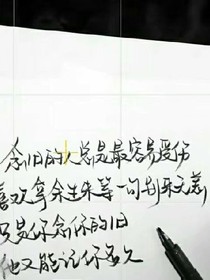 念旧的人总是最容易受伤
喜欢拿余生来等一句别来无恙
只是你念你的旧
他又能记你多久